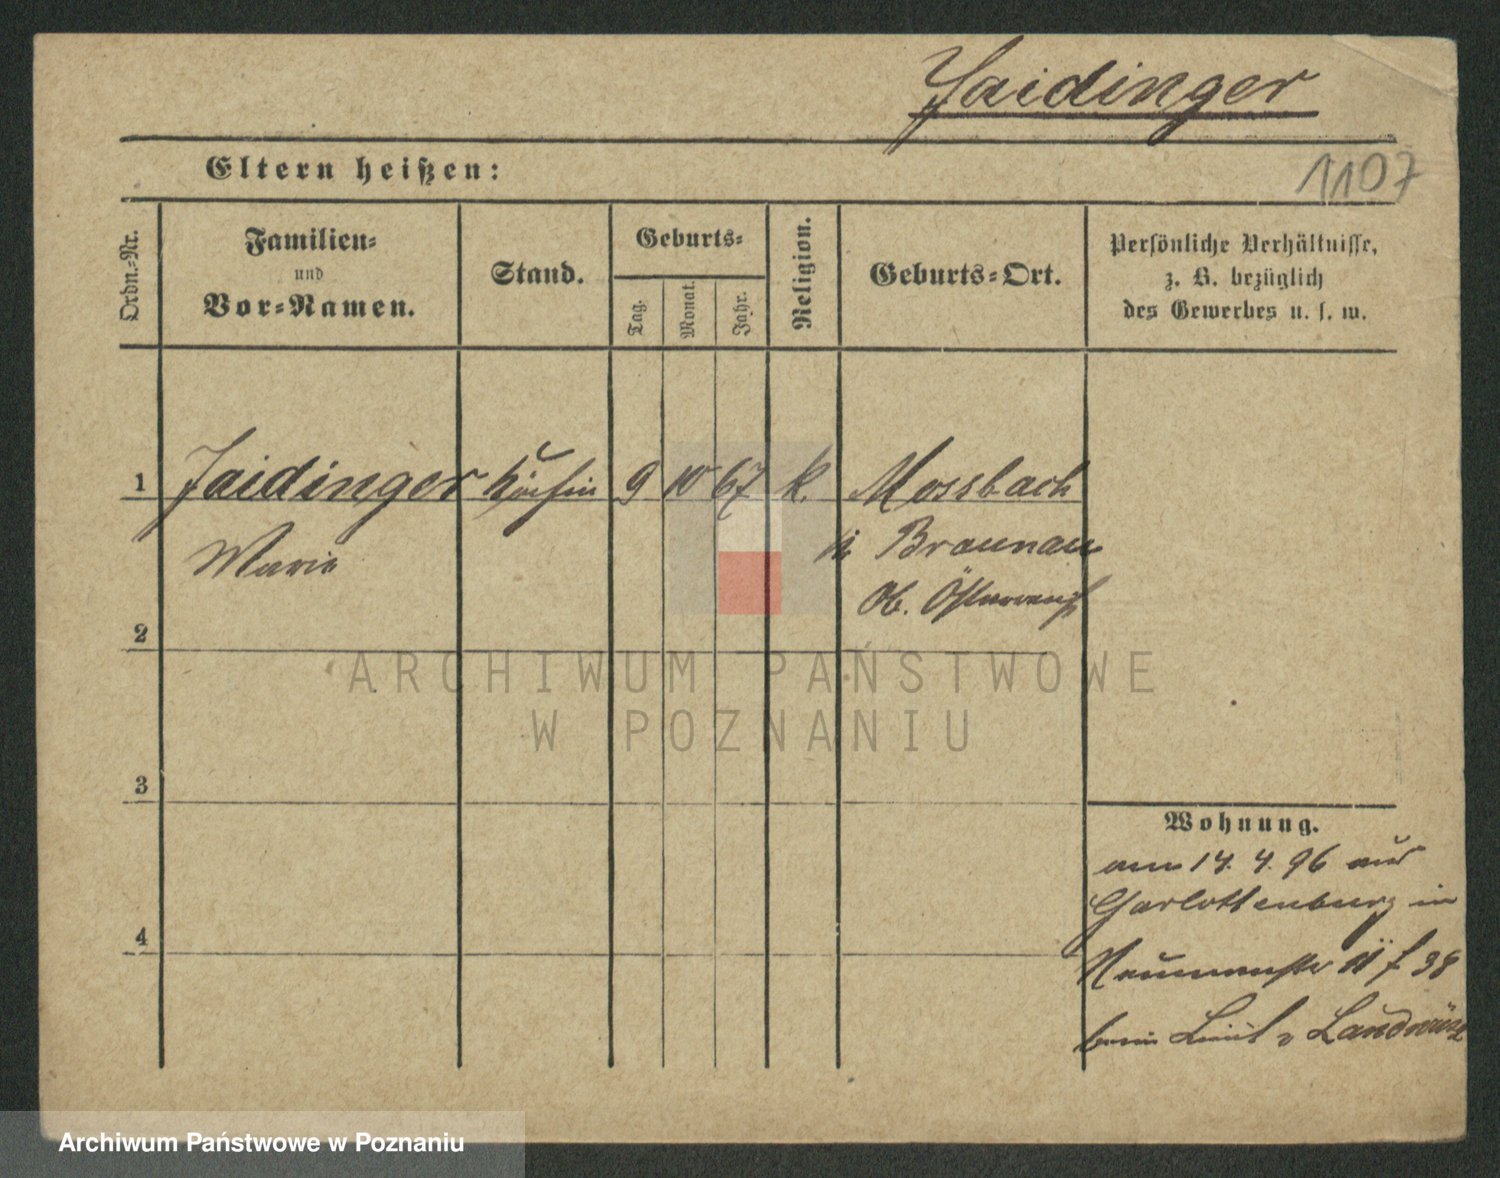 Jaidinger
1107
Eltern heißen:
Ordn.-Nr.
Familien-
und
Vor-Namen.
Stand.
Geburts-
Tag.
Monat.
Jahr.
Religion.
Geburts-Ort.
Persönliche Verhältnisse,
z. B. bezüglich
des Gewerbes u. s. w.
1
Jaidinger Köchin 9 10 67 k. Mossbach
Marie
in Braunau
Ob. Österreich
2
ARCHIWUM PAŃSTWOWE
W POZNANIU
3
4
Wohnung.
am 14. 4. 96 aus
Charlottenburg in
38
beim Lieut v
Archiwum Państwowe w Poznaniu